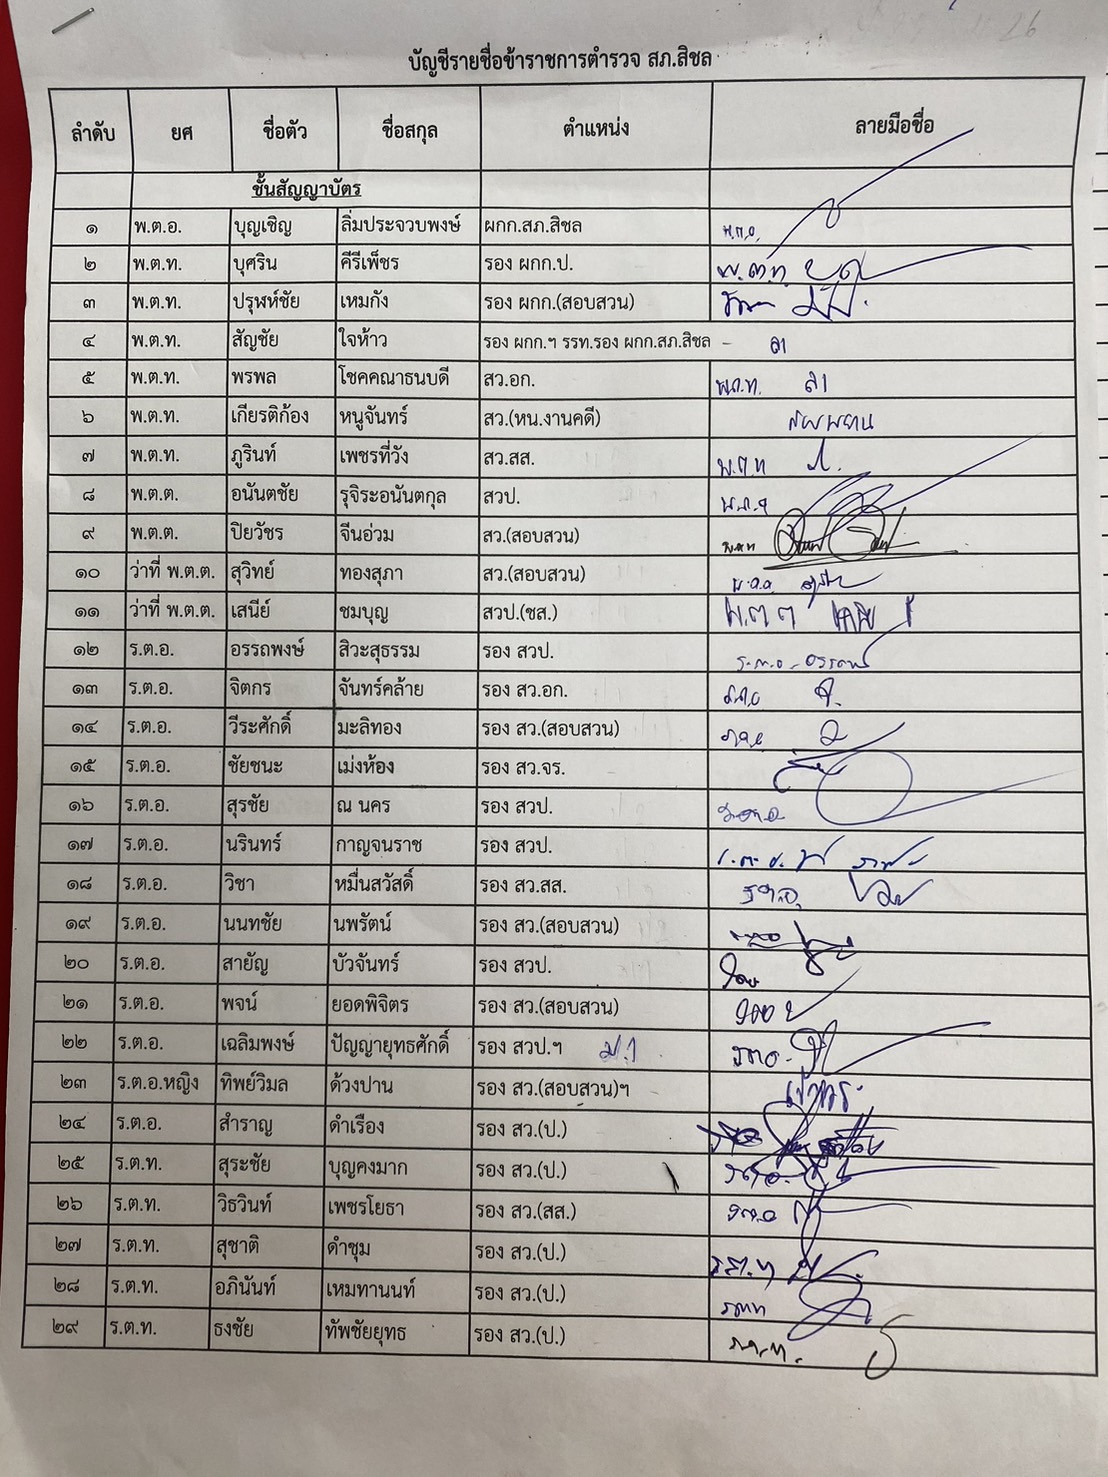 บัญชีรายชื่อข้าราชการตำรวจ สภ.สิชล
ลำดับ ยศ ชื่อตัว ชื่อสกุล ตำแหน่ง ลายมือชื่อ
ชั้นสัญญาบัตร
๑ พ.ต.อ. บุญเชิญ ลิ่มประจวบพงษ์ ผกก.สภ.สิชล พ.ต.อ.
๒ พ.ต.ท. บุศริน คีรีเพ็ชร รอง ผกก.ป. พ.ต.ท.
๓ พ.ต.ท. ปรุฬห์ชัย เหมกัง รอง ผกก.(สอบสวน)
๔ พ.ต.ท. สัญชัย ใจห้าว รอง ผกก.ฯ รรท.รอง ผกก.สภ.สิชล - ลา
๕ พ.ต.ท. พรพล โชคคณาธนบดี สว.อก. พ.ต.ท. ลา
๖ พ.ต.ท. เกียรติก้อง หนูจันทร์ สว.(หน.งานคดี)
๗ พ.ต.ท. ภูรินท์ เพชรที่วัง สว.สส. พ.ต.ท
๘ พ.ต.ต. อนันตชัย รุจิระอนันตกุล สวป.
๙ พ.ต.ต. ปิยวัชร จีนอ่วม สว.(สอบสวน)
๑๐ ว่าที่ พ.ต.ต. สุวิทย์ ทองสุภา สว.(สอบสวน)
๑๑ ว่าที่ พ.ต.ต. เสนีย์ ชมบุญ สวป.(ชส.) พ.ต.ต
๑๒ ร.ต.อ. อรรถพงษ์ สิวะสุธรรม รอง สวป. ร.ต.อ.
๑๓ ร.ต.อ. จิตกร จันทร์คล้าย รอง สว.อก.
๑๔ ร.ต.อ. วีระศักดิ์ มะลิทอง รอง สว.(สอบสวน)
๑๕ ร.ต.อ. ชัยชนะ เม่งห้อง รอง สว.จร.
๑๖ ร.ต.อ. สุรชัย ณ นคร รอง สวป.
๑๗ ร.ต.อ. นรินทร์ กาญจนราช รอง สวป. ร.ต.อ.
๑๘ ร.ต.อ. วิชา หมื่นสวัสดิ์ รอง สว.สส.
๑๙ ร.ต.อ. นนทชัย นพรัตน์ รอง สว.(สอบสวน)
๒๐ ร.ต.อ. สายัญ บัวจันทร์ รอง สวป.
๒๑ ร.ต.อ. พจน์ ยอดพิจิตร รอง สว.(สอบสวน)
๒๒ ร.ต.อ. เฉลิมพงษ์ ปัญญายุทธศักดิ์ รอง สวป.ฯ
๒๓ ร.ต.อ.หญิง ทิพย์วิมล ด้วงปาน รอง สว.(สอบสวน)ฯ
๒๔ ร.ต.อ. สำราญ ดำเรือง รอง สว.(ป.)
๒๕ ร.ต.ท. สุระชัย บุญคงมาก รอง สว.(ป.)
๒๖ ร.ต.ท. วิธวินท์ เพชรโยธา รอง สว.(สส.)
๒๗ ร.ต.ท. สุชาติ ดำชุม รอง สว.(ป.)
๒๘ ร.ต.ท. อภินันท์ เหมทานนท์ รอง สว.(ป.)
๒๙ ร.ต.ท. ธงชัย ทัพชัยยุทธ รอง สว.(ป.)